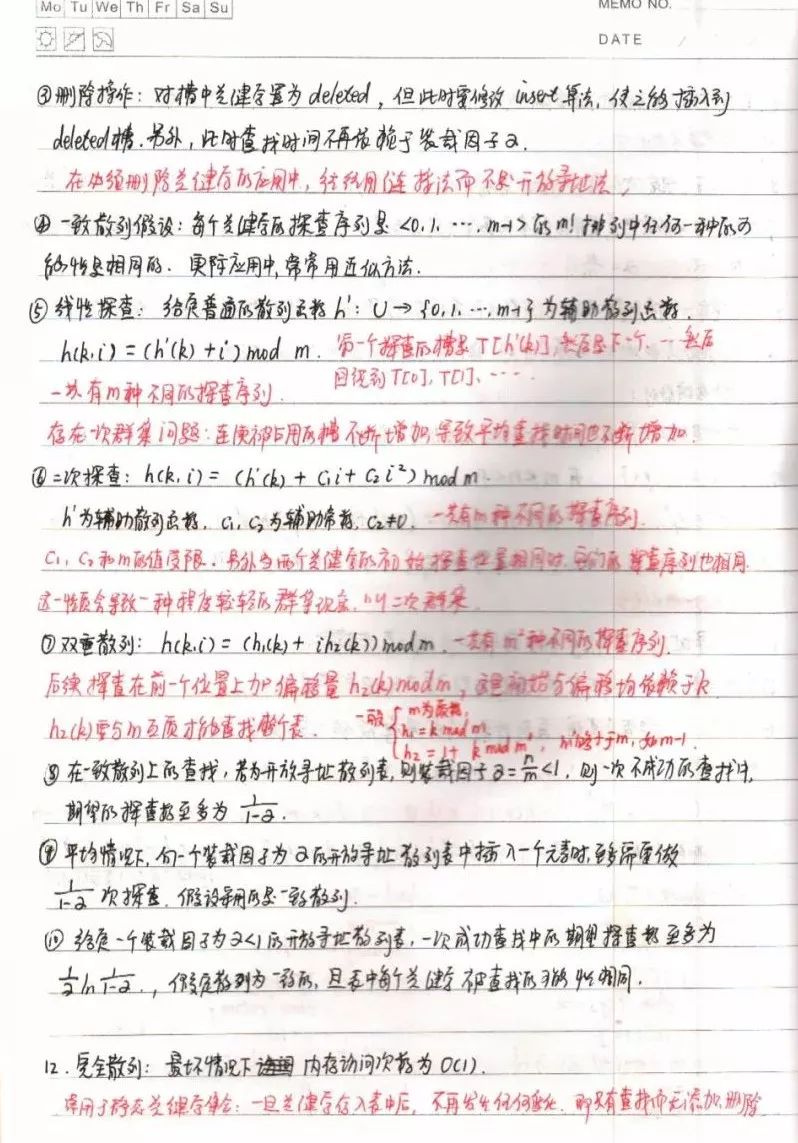 Mo Tu We Th Fr Sa Su
MEMO NO.
DATE /
③删除操作：对槽中关键字置为deleted，但此时要修改insert算法，使之能插入到
deleted槽.另外，此时查找时间不再依赖于装载因子α.
在必须删除关键字的应用中，往往用链接法而不是开放寻址法.
④一致散列假设：每个关键字的探查序列是<0,1,…,m-1>的m!排列中任何一种的可
能性是相同的. 实际应用中,常常用近似方法.
⑤线性探查：给定普通的散列函数h': U→{0,1,…,m-1}为辅助散列函数.
h(k,i)=(h'(k)+i)mod m. 第一个探查的槽是T[h'(k)],然后是下一个,…然后
回绕到T[0],T[1],….
一共有m种不同的探查序列.
存在一次群集问题：连续被占用的槽不断增加,导致平均查找时间也不断增加.
⑥二次探查：h(k,i)=(h'(k)+c₁i+c₂i²)mod m.
h'为辅助散列函数, c₁,c₂为辅助常数,c₂≠0. 一共有m种不同的探查序列.
c₁,c₂和m的值受限.另外当两个关键字的初始探查位置相同时,它们的探查序列也相同.
这一性质会导致一种程度较轻的群集现象,叫二次群集
⑦双重散列：h(k,i)=(h₁(k)+ih₂(k))mod m. 一共有m²种不同的探查序列.
后续探查在前一个位置上加偏移量h₂(k)mod m, 这里初始与偏移均依赖于k
h₂(k)要与m互质才能查找整个表. 一般{ m为质数,
h₁=k mod m
h₂=1+k mod m', m'略小于m,如m-1.
⑧在一致散列上的查找,若为开放寻址散列表,则装载因子α=n/m<1, 则一次不成功的查找中,
期望的探查数至多为 1/(1-α).
⑨平均情况下,向一个装载因子为α的开放寻址散列表中插入一个元素时,至多需要做
1/(1-α) 次探查. 假设采用的是一致散列.
⑩给定一个装载因子为α<1的开放寻址散列表,一次成功查找中的期望探查数至多为
1/α ln 1/(1-α)., 假定散列为一致的,且表中每个关键字被查找的可能性相同.
12.完全散列：最坏情况下内存访问次数为O(1).
常用于静态关键字集合：一旦关键字存入表中后,不再发生任何变化. 即只有查找而无添加,删除